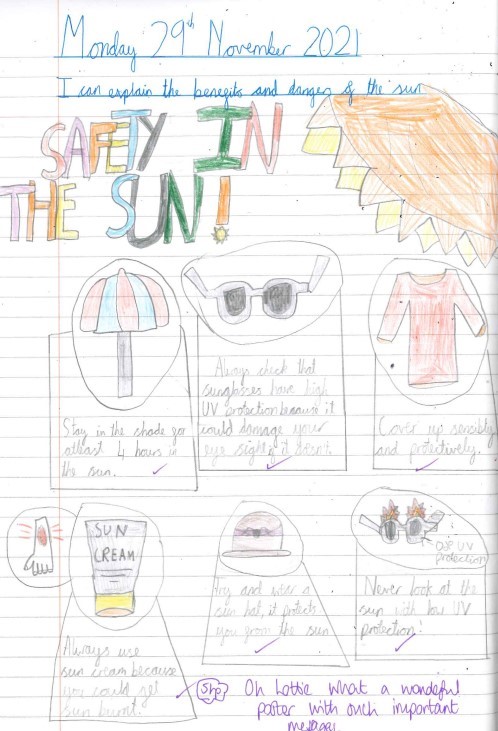 Monday 29th November 2021
I can explain the benefits and dangers of the sun
SAFETY IN
THE SUN!
Stay in the shade for
atleast 4 hours in
the sun.
Always check that
sunglasses have high
UV protection because it
could damage your
eye sight if it doesn't.
Cover up sensibly
and protectively.
SUN
CREAM
Always use
sun cream because
you could get
sun burnt.
Try and wear a
sun hat, it protects
you from the sun
UV
protection
Never look at the
sun with low UV
protection!
Oh Lottie what a wonderful
poster with such important
messages.